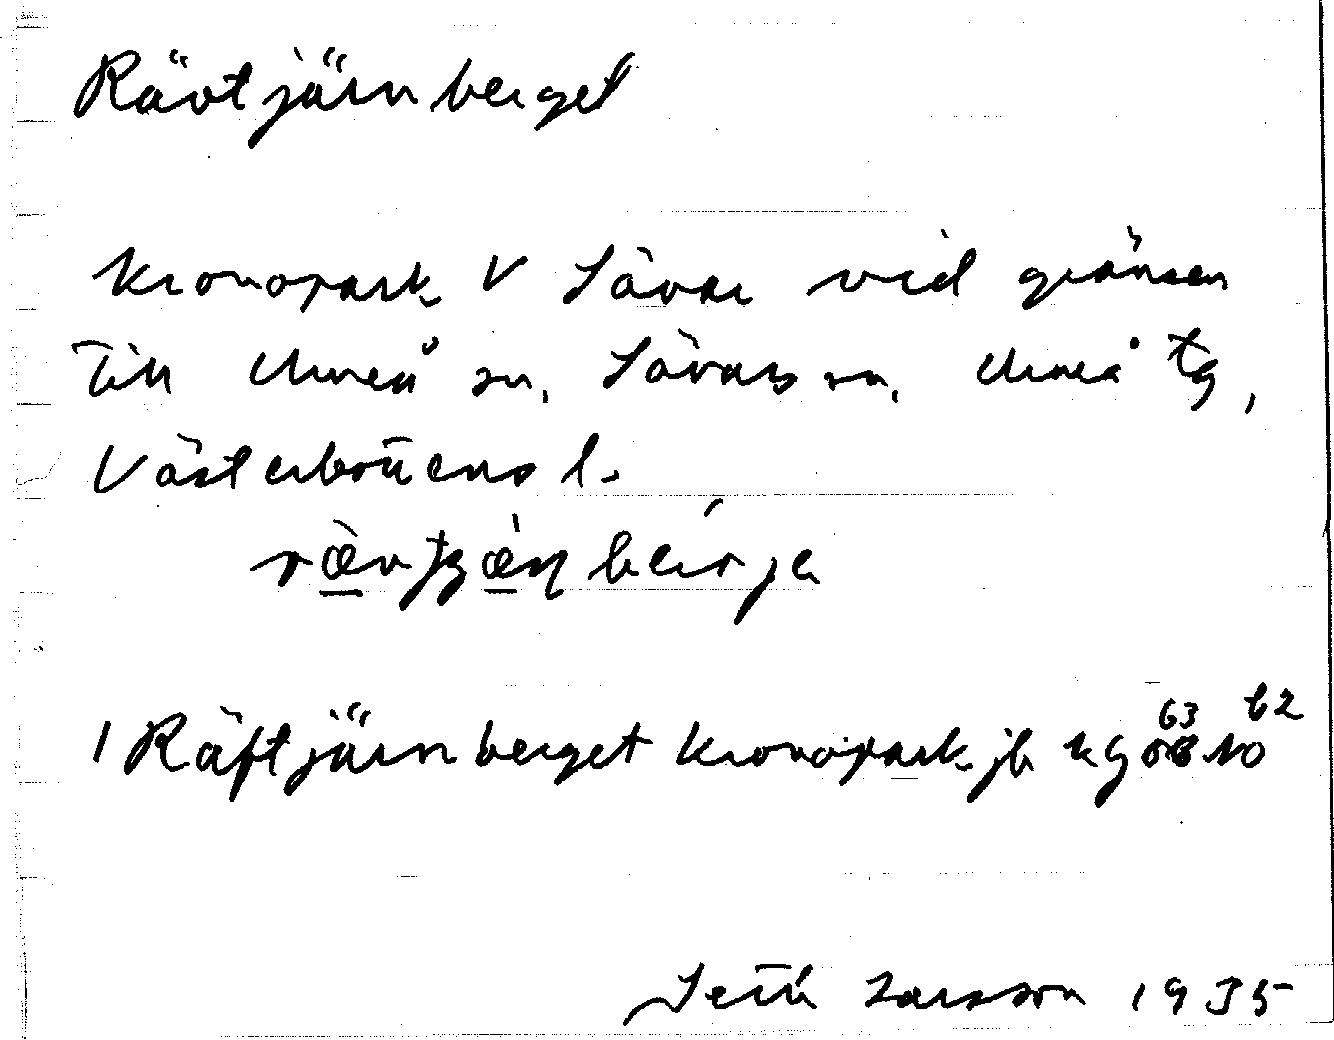 Rävtjärnberget
Kronopark V Sävar vid gränsen
till Umeå sn, Sävars sn, Umeå tg,
Västerbottens l.
berget
1 Räftjärnberget Kronopark jb
Seth Larsson 1935